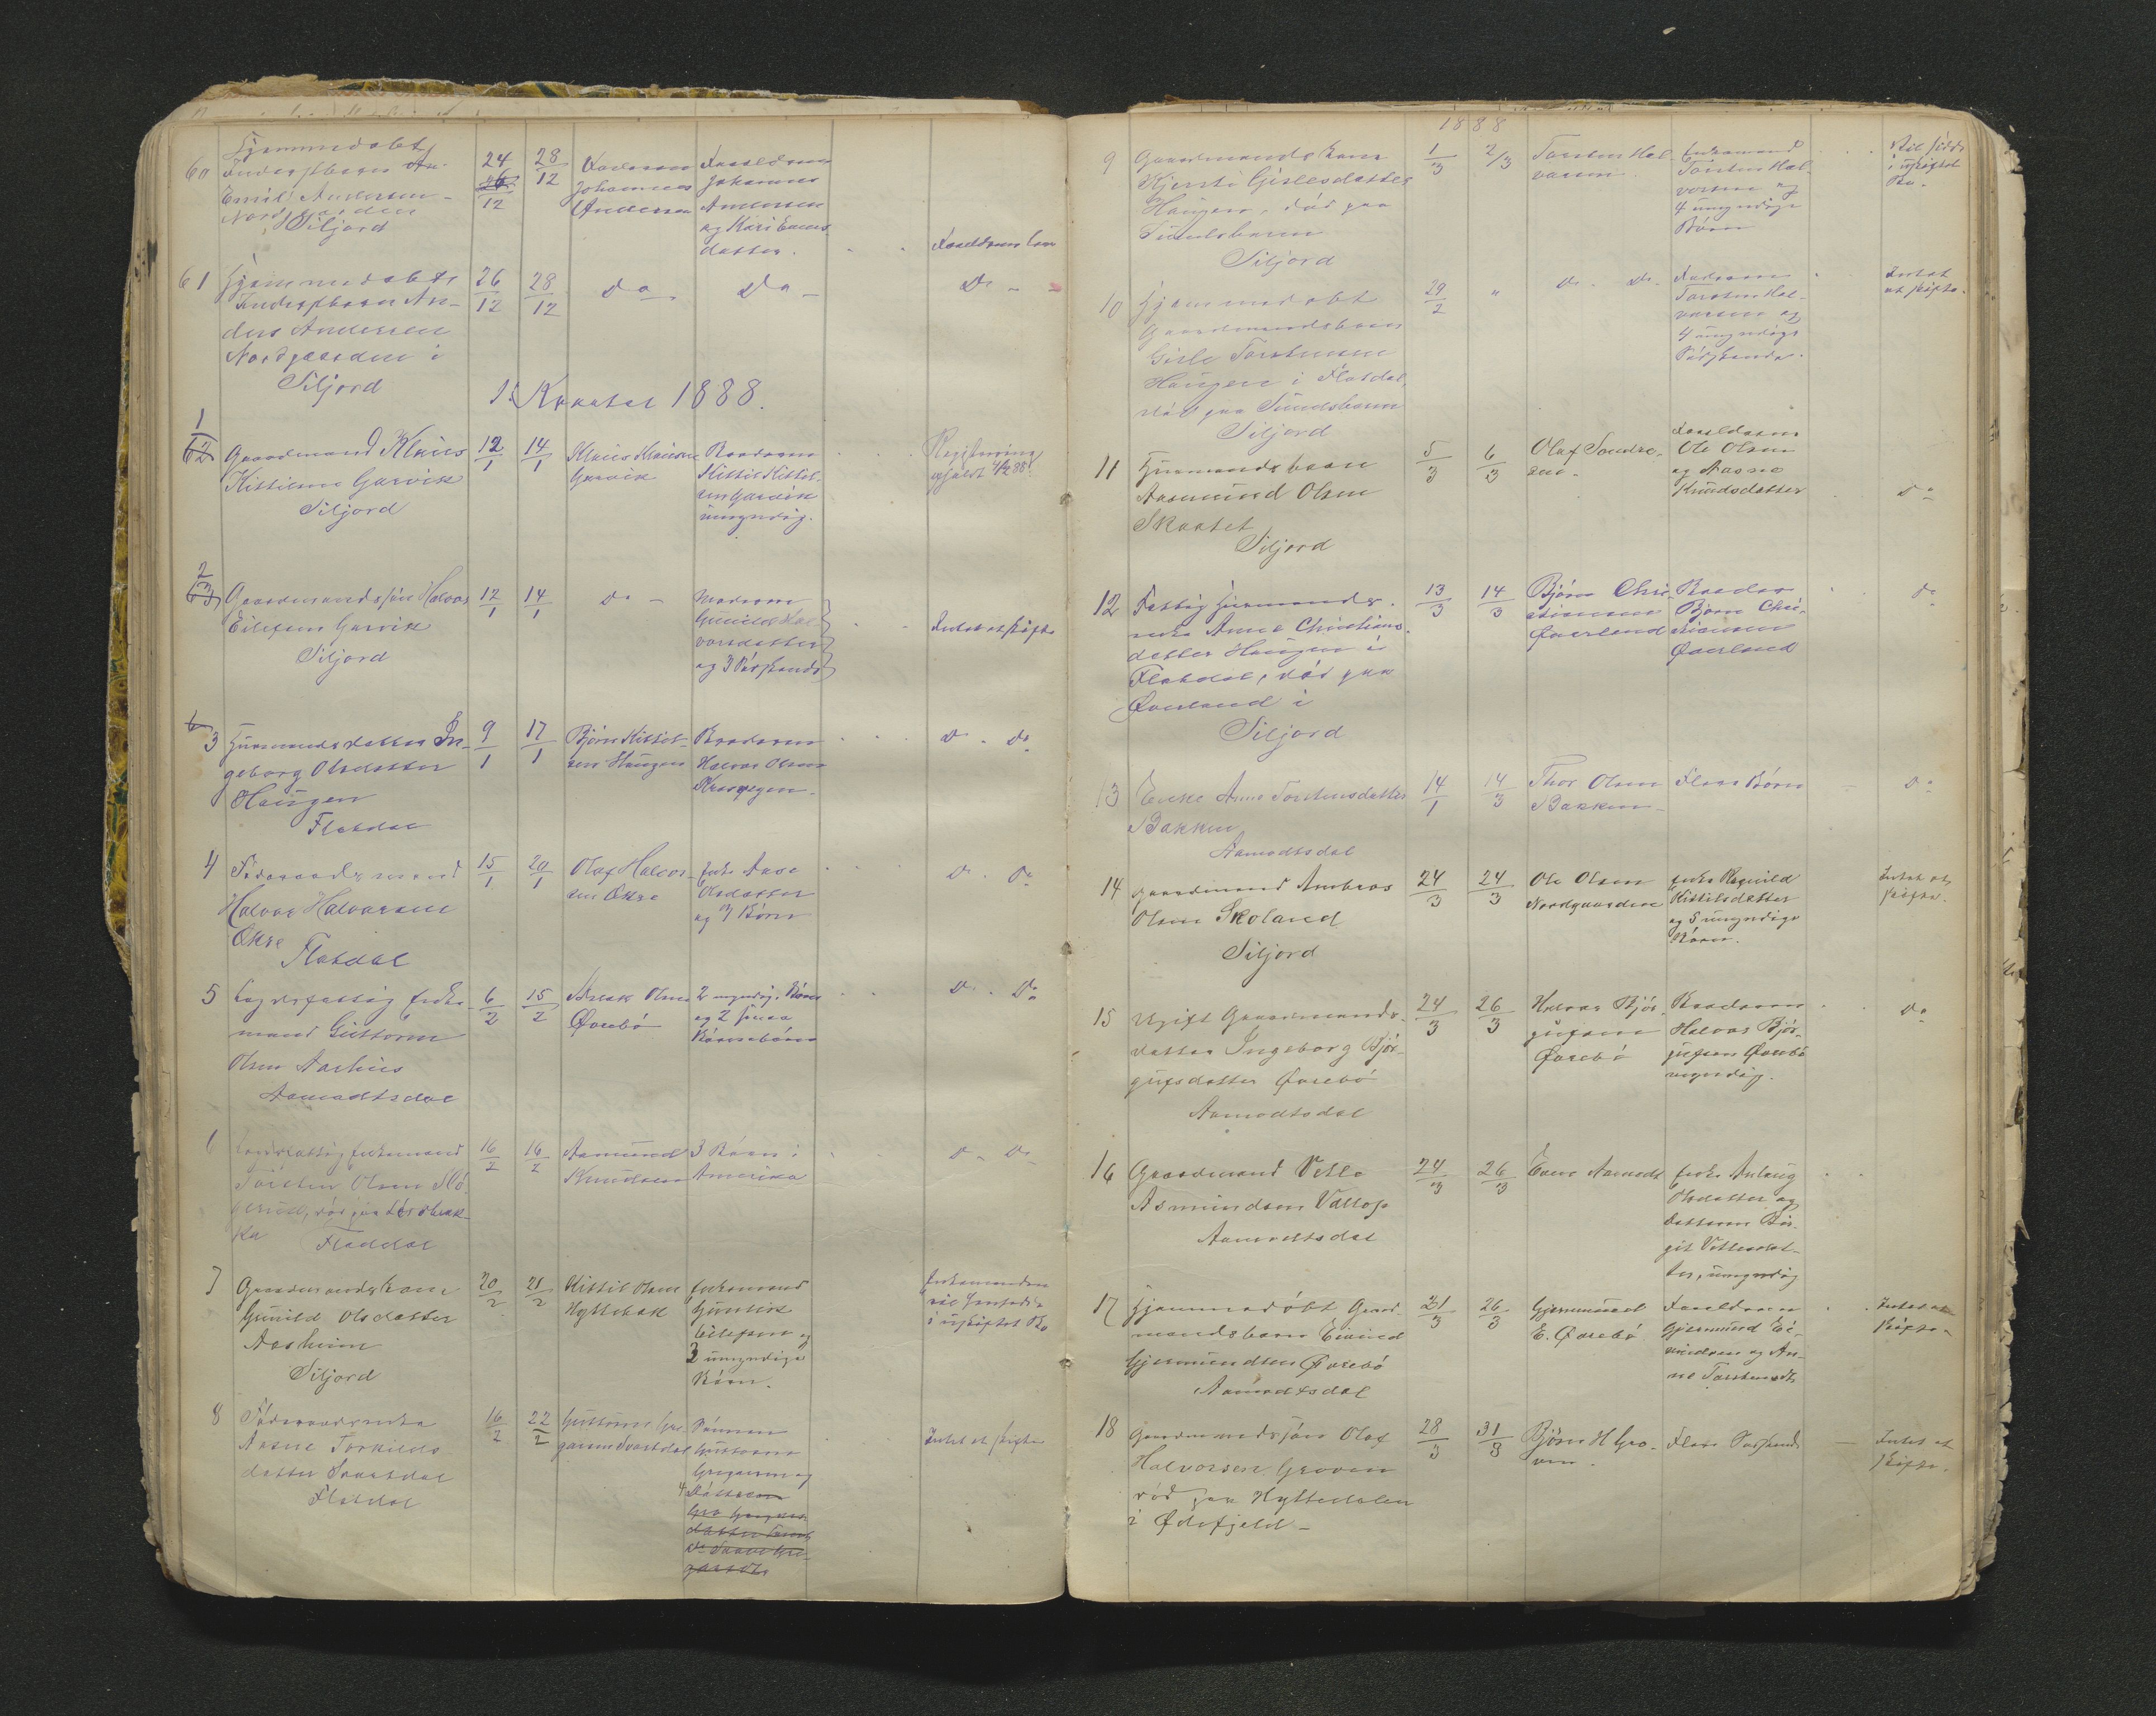 60
Hjemmedøbt
Inderstbarn An-
Emil Andersen
Nordgaarden
i Siljord
24
26
12
28
12
Faderen
Johannes
Andersen
Forældrene
Johannes
Andersen
og Kari Evens
datter.
Forældrene
61
Hjemmedøbte
Inderstbarn An-
ders Andersen
Nordgaarden i
Siljord
26
12
28
12
Do
Do
Do
1. Kvartal 1888.
1
62
Gaardmand Klaus
Kittilsen Garvik
Siljord
12
1
14
1
Klaus Klausen
Garvik
Broderen
Kittil Kittil-
sen Garvik
umyndig.
Registrering
2
63
Gaardmandssøn Halvor
Eilefsen Garvik
Siljord
12
1
14
1
Do
Moderen
Gunild Hal
vorsdatter
og 3 Sødskende
Intet at skifte
3
Husmandsdatter In-
geborg Olsdatter
Haugen
Flatdal
9
1
17
1
Bjørn Kittil-
sen Haugen
Broderen
Halvor Olsen
Do. Do
4
Føderaadsmand
Halvor Halvorsen
Økre
Flatdal
15
1
20
1
Olaf Halvor-
sen Økre
Enke Aase
Olsdatter
og 7 Børn
Do. Do
5
Lægdsfattig Enke-
mand Guttorm
Olsen Aarhus
Aamodtsdal
6
2
15
2
Aslak Olsen
Øvrebø
2 myndige Børn
og 2 smaa
Børnebørn
Do. Do
6
Enkemand
Torsten Olsen
Fladdal
16
2
16
2
Aamund
Knudsen
3 Børn i
Amerika
Do. Do
7
Gaardmandskone
Gunild Olsdatter
Aasheim
Siljord
20
2
21
2
Kittil Olsen
Hyttebak
Enkemand
Gunleik
Eilefsen og
3 umyndige
Børn.
Enkemanden
vil hensidde
i uskiftet Bo
8
Føderaadsenke
Aasne Torkilds
datter Svartdal
Flatdal
16
2
22
2
Guttorm Gre
garsen Svartdal
Sønnen
Guttorm
Gregarsen og
4 Døttrene
Gro Gregars
datter
Intet at skifte
1888
9
Gaardmandskone
Kjersti Gislesdatter
Haugen, død paa
Sundsbarm
Siljord
1
3
2/3
Torsten Hal-
vorsen
Enkemand
Torsten Hal-
vorsen og
4 umyndige
Børn
Vil sidde
i uskiftet
Bo.
10
Hjemmedøbt
Gaardmandsbarn
Gisle Torstensen
Haugen i Flatdal,
død paa Sundsbarm
Siljord
29
2
"
Do. Do.
Faderen
Torsten Hal-
vorsen og
4 umyndige
Sødskende.
Intet
at skifte.
11
Husmandsbarn
Aasmund Olsen
Skaatet
Siljord
5
3
6
3
Olaf Sondre-
sen.
Forældrene
Ole Olsen
og Aasne
Knudsdatter
Do
12
Fattig Husmands-
enke Anne Christians-
datter Haugen i
Flatdal, død paa
Øverland i
Siljord
13
3
14
3
Bjørn Chri-
stiansen
Øverland
Broder
Bjørn Chri-
stiansen
Øverland
Do
13
Enke Anne Torstensdatter
Bakken
Aamodtsdal
14
1
14
3
Thor Olsen
Bakken
Flere Børn
Do
14
Gaardmand Ambros
Olsen Skoland
Siljord
24
3
24
3
Ole Olsen
Nordgaarden
Enke Ragnild
Kittilsdatter
og 5 umyndige
Børn.
Intet at
skifte.
15
Ugift Gaardmands-
datter Ingeborg Bjør-
gufsdatter Øvrebø
Aamodtsdal
24
3
26
3
Halvor Bjør-
gufsen
Øvrebø
Broderen
Halvor Bjør-
gufsen Øvrebø
myndig.
Do
16
Gaardmand Vetle
Asmundsen Valtop
Aamodtsdal
24
3
26
3
Even Aamodt
Enke Anlaug
Olsdatter og
Datteren Bir-
git Vetlesdat-
ter, umyndig
17
Hjemmedøbt Gaard-
mandsbarn Eivind
Gjermundsen Øvrebø
Aamodtsdal
21
3
26
3
Gjermund
E. Øvrebø
Forældrene
Gjermund Ei-
vindsen og An-
ne Torstensdt
Intet at
skifte.
18
Gaardmandssøn Olaf
Halvorsen Groven
død paa Hyttedalen
i Ødefjeld
28
3
31
3
Bjørn H Gro-
ven.
Flere Sødskende
Intet at
skifte.